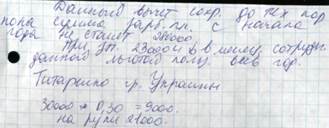 Данный вычет сохр. до тех пор
пока сумма зарп. пл. с начала
года не станет 280000
При зп. 23000 в месяц сотруд.
данной льготой польз. весь год.
Титаренко гр. Украины
30000 * 0,30 = 9000.
на руки 21000.